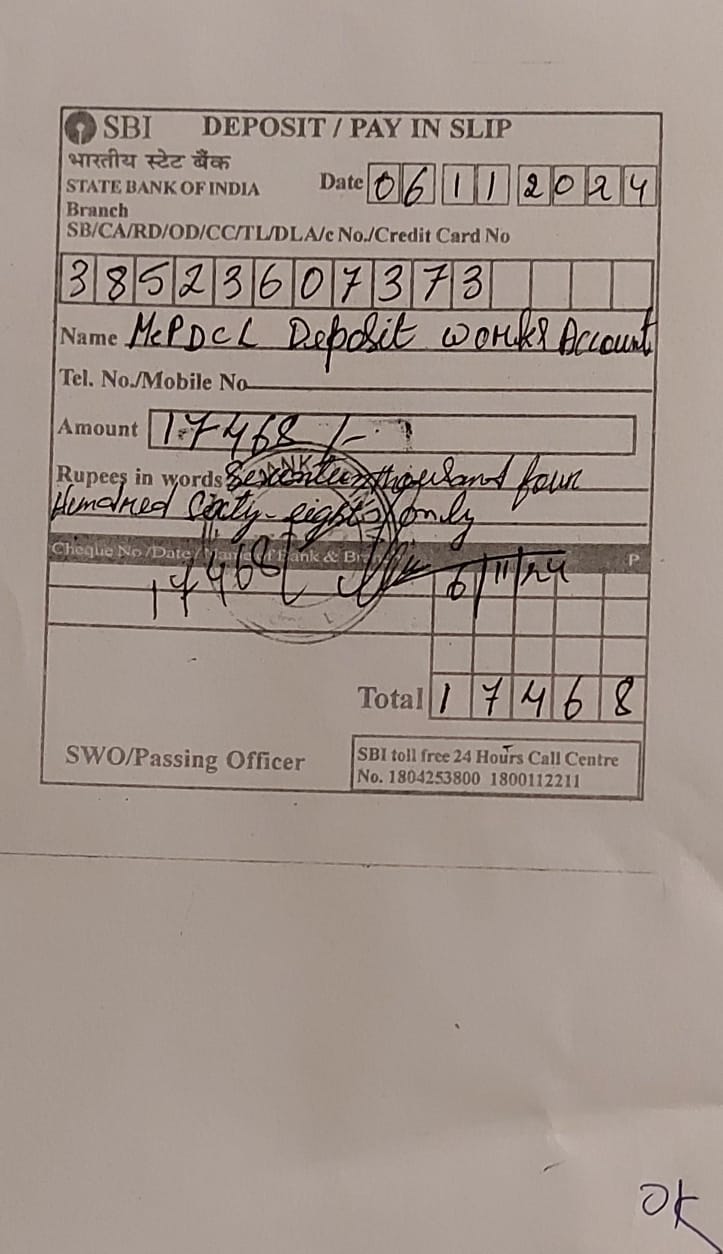 SBI DEPOSIT / PAY IN SLIP
भारतीय स्टेट बैंक
STATE BANK OF INDIA Date 06112024
Branch
SB/CA/RD/OD/CC/TL/DLA/c No./Credit Card No
38523607373
Name MePDCL Deposit works Account
Tel. No./Mobile No
Amount 17468/-
Rupees in words Seventeen thousand four
Hundred Sixty-eight only
Cheque No /Date / Name of Bank & Br P
17468 6/11/24
Total 17468
SWO/Passing Officer
SBI toll free 24 Hours Call Centre
No. 1804253800 1800112211
OK